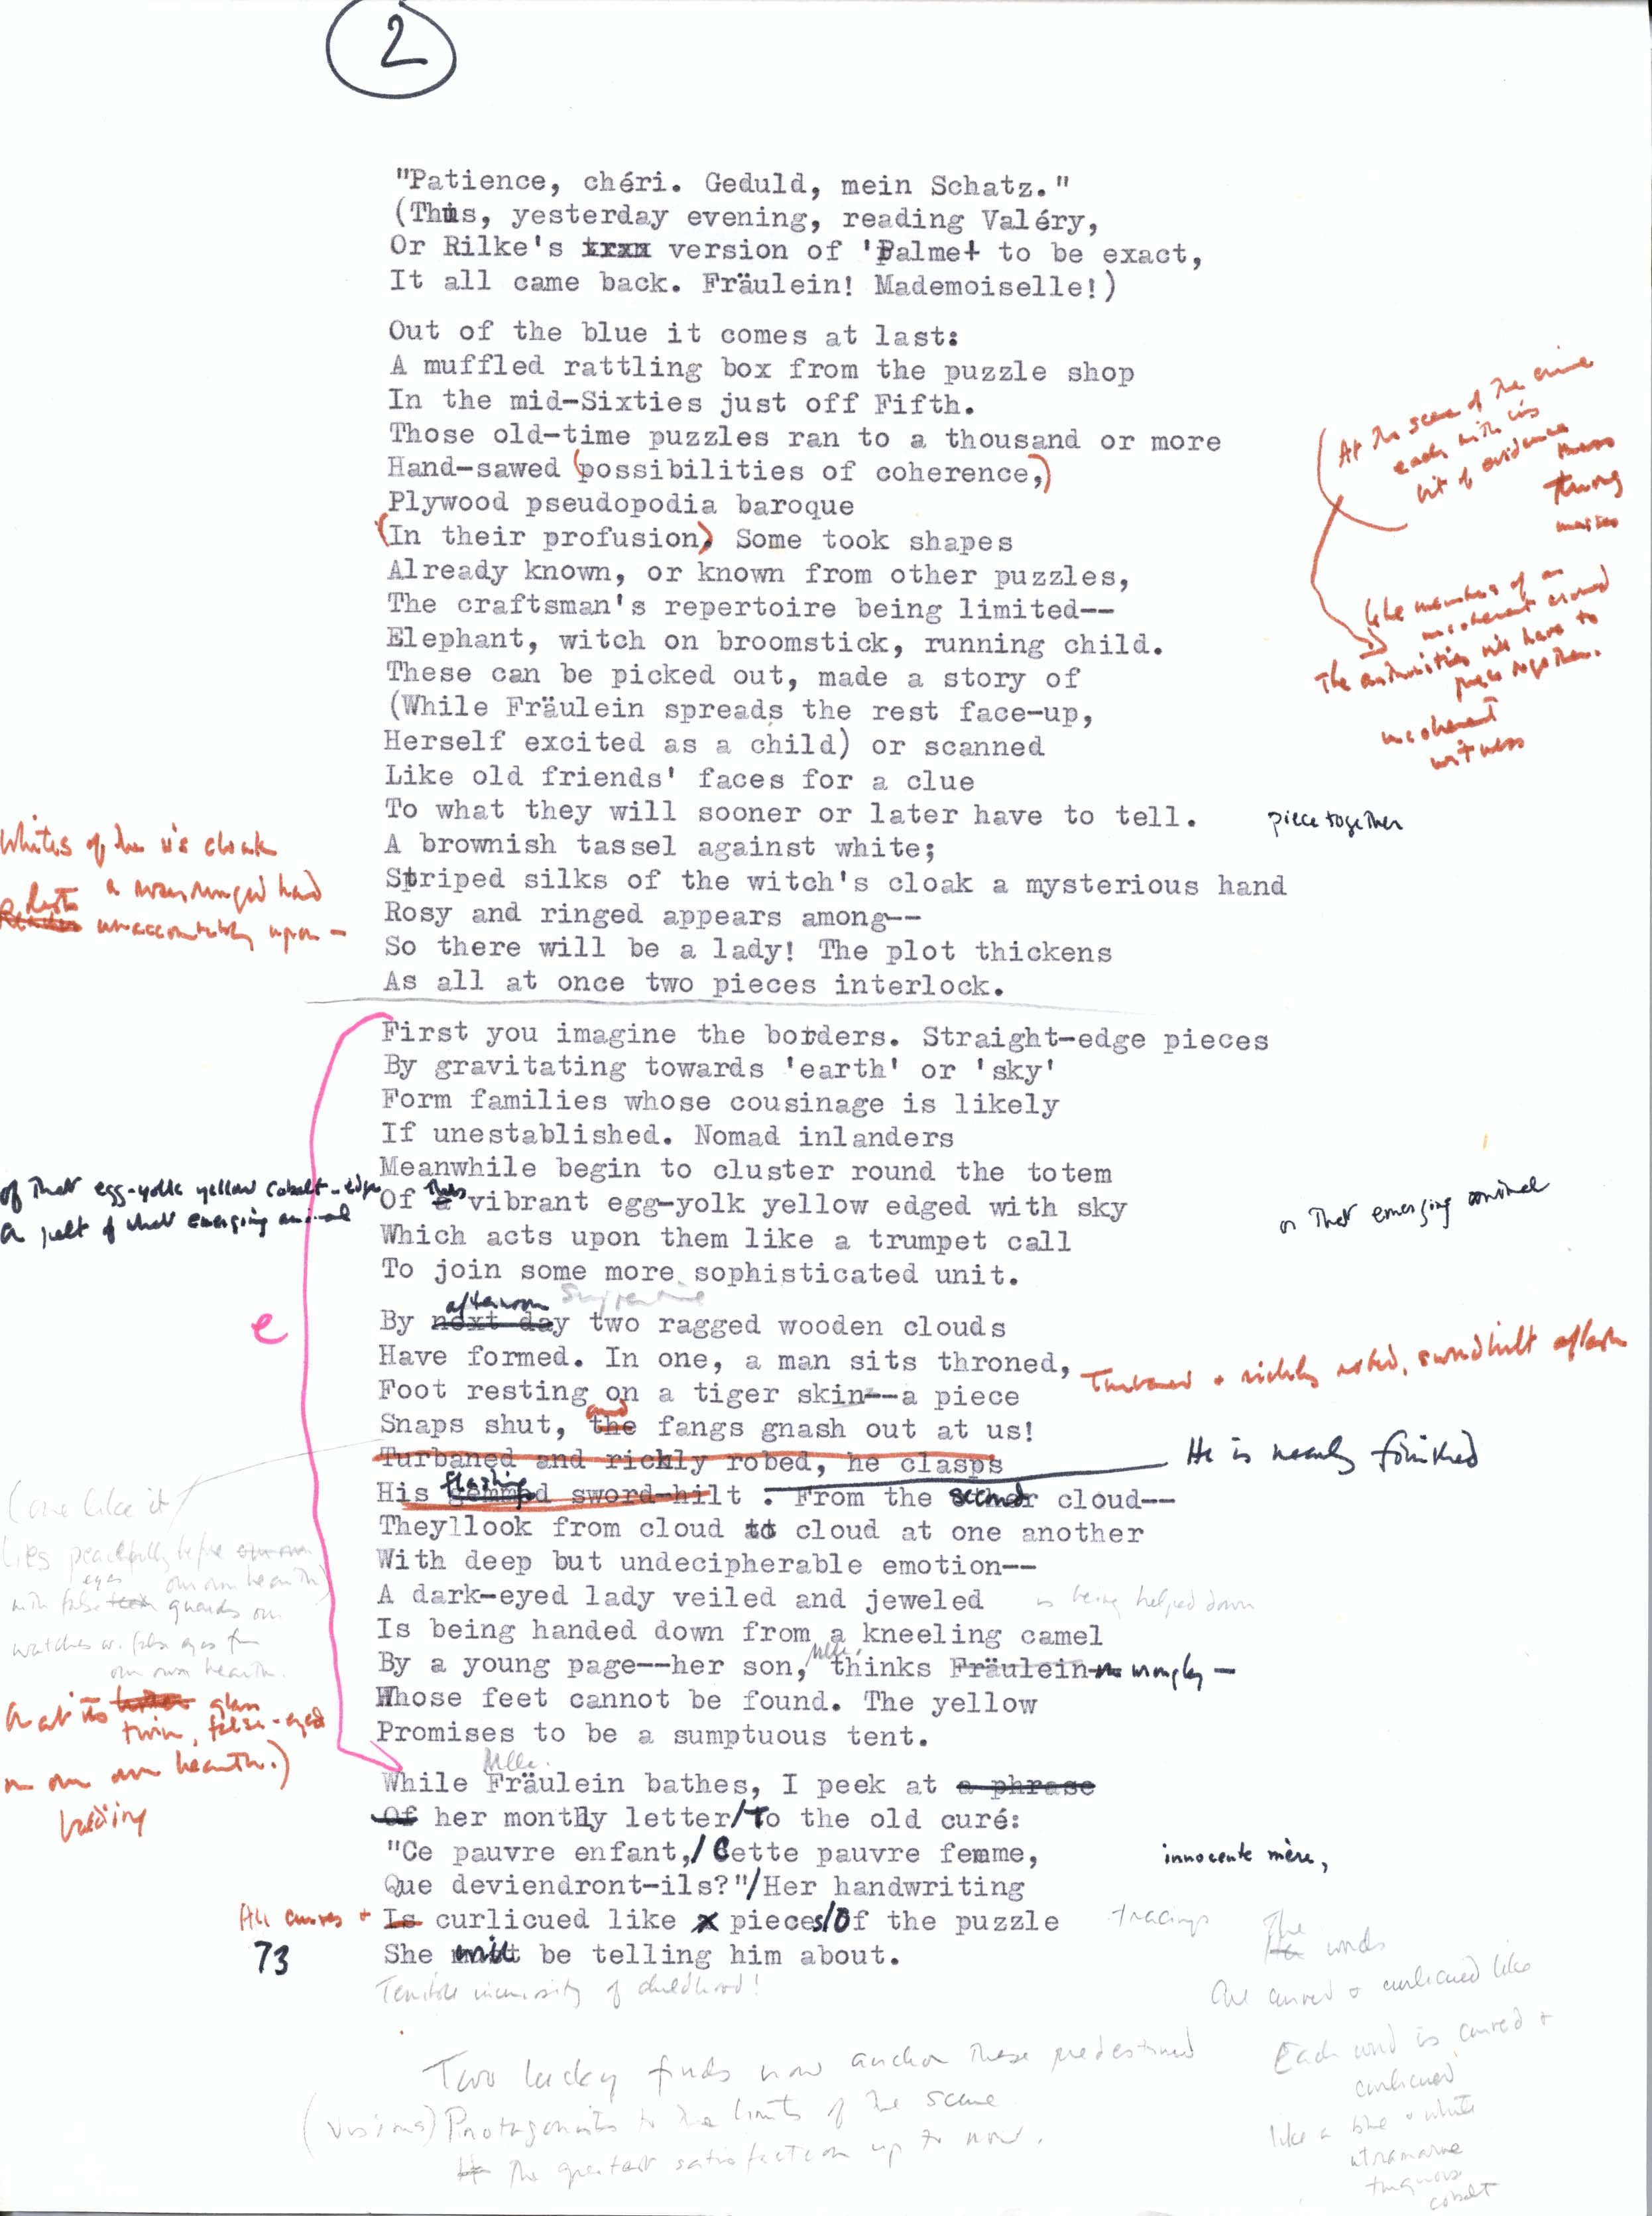 2
"Patience, chéri. Geduld, mein Schatz."
(This, yesterday evening, reading Valéry,
Or Rilke's version of 'Palme' to be exact,
It all came back. Fräulein! Mademoiselle!)
Out of the blue it comes at last:
A muffled rattling box from the puzzle shop
In the mid-Sixties just off Fifth.
Those old-time puzzles ran to a thousand or more
Hand-sawed (possibilities of coherence,)
Plywood pseudopodia baroque
(In their profusion) Some took shapes
Already known, or known from other puzzles,
The craftsman's repertoire being limited--
Elephant, witch on broomstick, running child.
These can be picked out, made a story of
(While Fräulein spreads the rest face-up,
Herself excited as a child) or scanned
Like old friends' faces for a clue
To what they will sooner or later have to tell. piece together
A brownish tassel against white;
Striped silks of the witch's cloak a mysterious hand
Rosy and ringed appears among--
So there will be a lady! The plot thickens
As all at once two pieces interlock.
At the scene of the crime
each with his
bit of evidence
like members of an
incoherent crowd
The authorities will have to
piece together.
incoherent
witness
Whites of the w's cloak
a ringed hand
Rests unaccountably upon —
First you imagine the borders. Straight-edge pieces
By gravitating towards 'earth' or 'sky'
Form families whose cousinage is likely
If unestablished. Nomad inlanders
Meanwhile begin to cluster round the totem
Of a this vibrant egg-yolk yellow edged with sky
Which acts upon them like a trumpet call
To join some more sophisticated unit.
of that egg-yolk yellow cobalt-edge
a pelt of what emerging animal
or that emerging animal
e
afternoon Suppertime
By next day two ragged wooden clouds
Have formed. In one, a man sits throned,
Turbaned + richly robed, swordhilt aflash
Foot resting on a tiger skin--a piece
Snaps shut, the and fangs gnash out at us!
Turbaned and richly robed, he clasps
He is nearly finished
His gemmed flashing sword-hilt . From the second cloud--
They look from cloud to cloud at one another
With deep but undecipherable emotion--
A dark-eyed lady veiled and jeweled is being helped down
Is being handed down from a kneeling camel
By a young page--her son, Mlle. thinks Fräulein wrongly —
Whose feet cannot be found. The yellow
Promises to be a sumptuous tent.
(one like it
lies peacefully before
our own hearth)
with false teeth eyes guards our
watches w. false eyes from
our own hearth.
glass
twin, false-eyed
on our own hearth.)
Mlle.
While Fräulein bathes, I peek at a phrase
Of her montly letter/To the old curé:
"Ce pauvre enfant,/Cette pauvre femme, innocente mère,
Que deviendront-ils?"/Her handwriting
All curves + Is curlicued like pieces/Of the puzzle tracings
73 She will be telling him about.
Terrible incuriosity of childhood!
The words
are curved + curlicued like
Each word is curved +
curlicued
like a blue + white
ultramarine
turquoise
cobalt
Two lucky finds now anchor these predestined
(visions) Protagonists to the limits of the scene
The greatest satisfaction up to now.